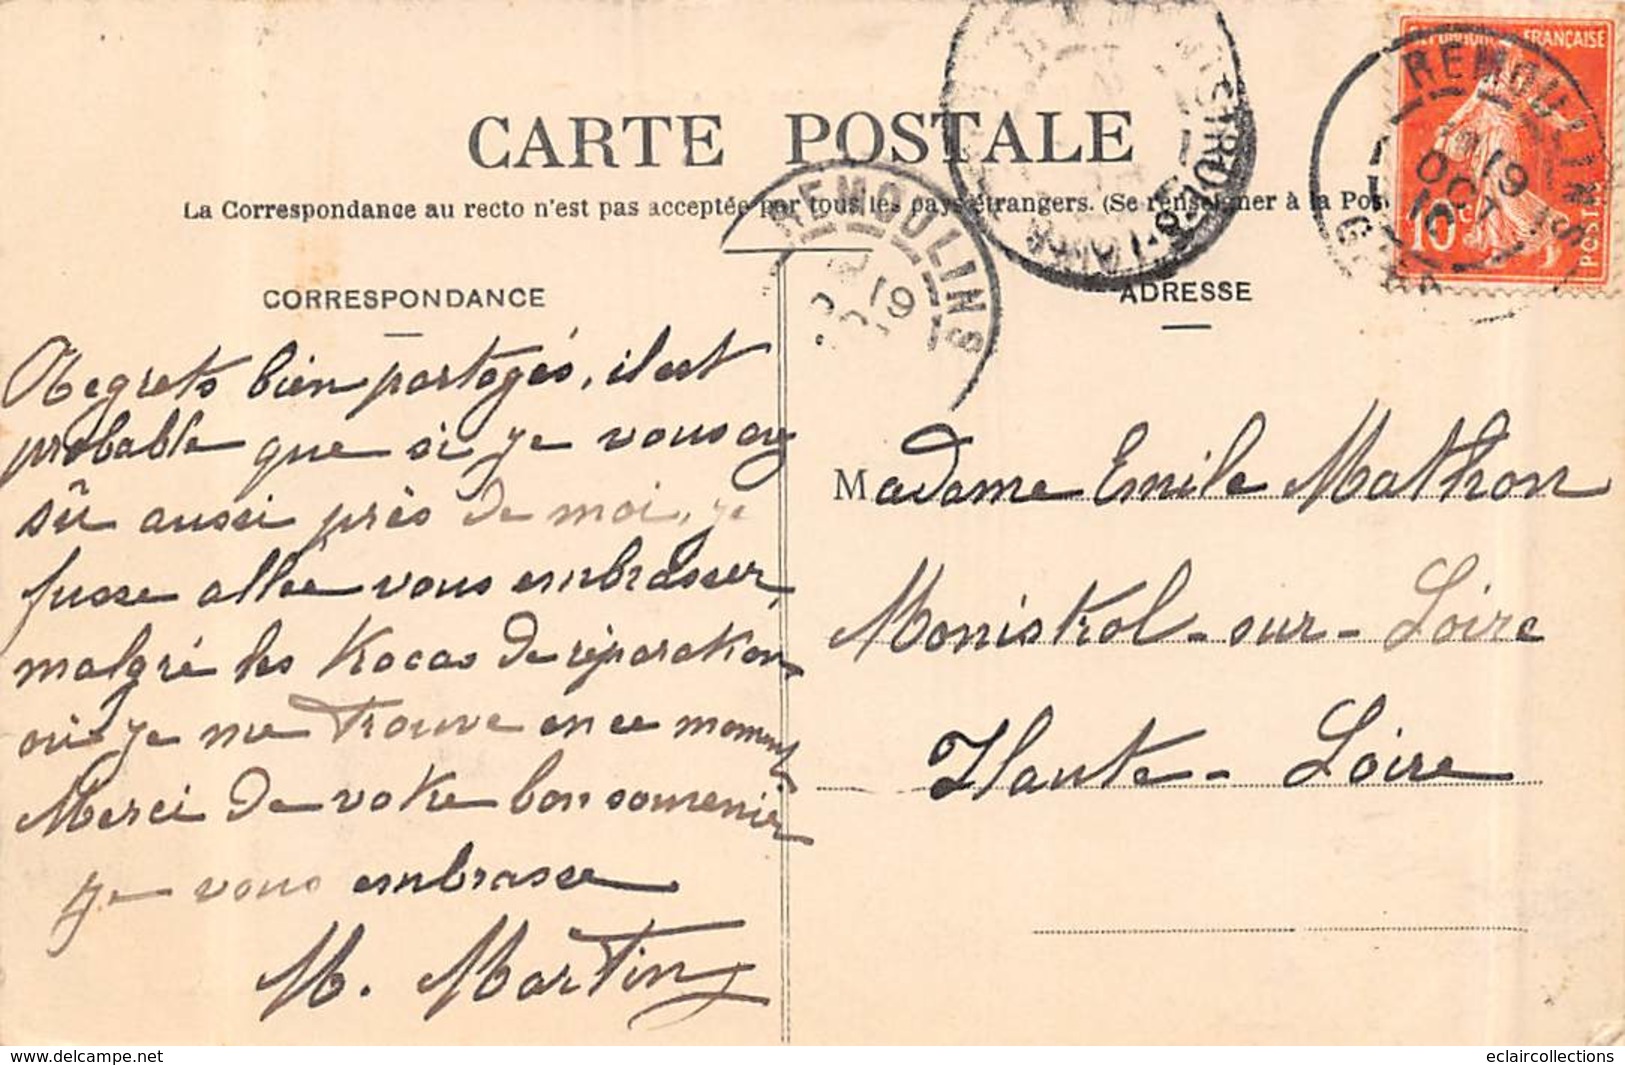 CARTE POSTALE
La Correspondance au recto n'est pas acceptée par tous les pays étrangers. (Se renseigner à la Pos
CORRESPONDANCE
Regrets bien partagés, il est
probable que si je vous avs
sû aussi près de moi, je
fusse allée vous embrasser,
malgré les tracas de réparation
où je me trouve en ce moment
Merci de votre bon souvenir
je vous embrasse
M. Martin
ADRESSE
Madame Emile Mathon
Monistrol-sur-Loire
Haute-Loire
REPUBLIQUE FRANÇAISE
10c
POSTES
REMOULINS
19
OCT
10
GARD
REMOULINS
19
MONISTROL-S-LOIRE
delcampe.net
eclaircollections